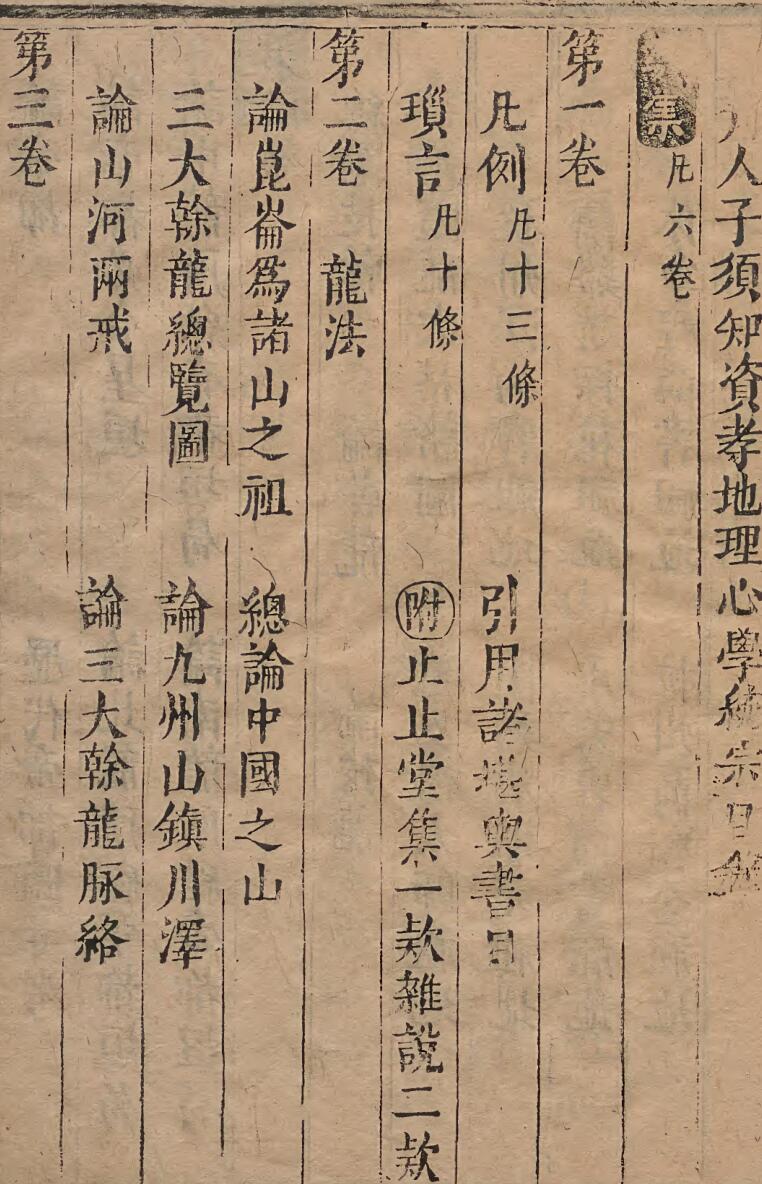 人子須知資孝地理心學統宗目錄
集 凡六卷
第一卷
凡例 凡十三條 引用諸堪輿書目
瑣言 凡十條 附止止堂集一款雜說二款
第二卷 龍法
論崑崙爲諸山之祖 總論中國之山
三大幹龍總覽圖 論九州山鎮川澤
論山河兩戒 論三大幹龍脉絡
第三卷